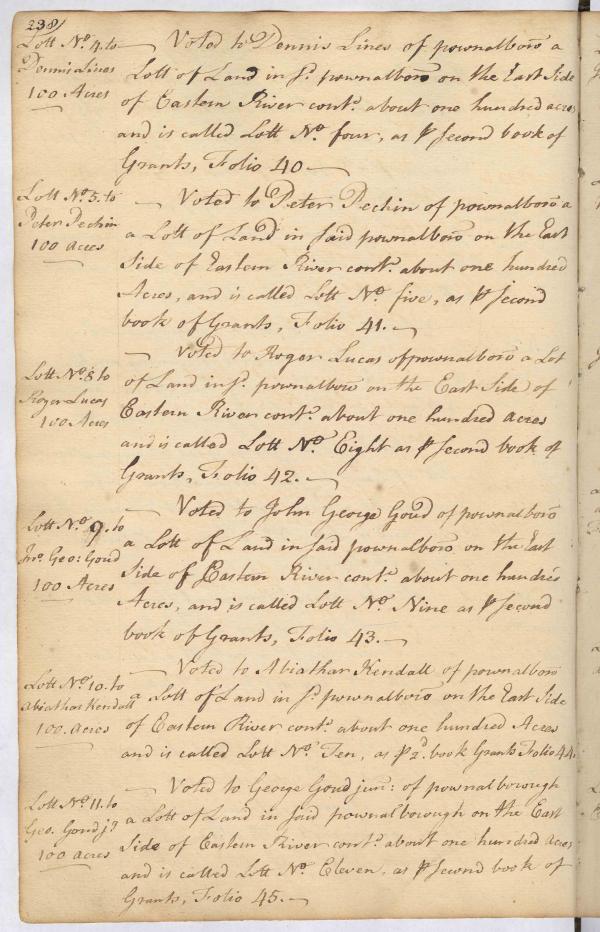 238
Lott No. 4. to
Dennis Lines
100 Acres
— Voted to Dennis Lines of pownalboro a
Lott of Land in sd. pownalboro on the East Side
of Eastern River contg. about one hundred acres
and is called Lott No. four, as ⅌ Second book of
Grants, Folio 40 —
Lott No. 5. to
Peter Pechin
100 acres
— Voted to Peter Pechin of pownalboro a
a Lott of Land in said pownalboro on the East
Side of Eastern River contg. about one hundred
Acres, and is called Lott No. five, as ⅌ Second
book of Grants, Folio 41. —
Lott No. 8 to
Roger Lucas
100 Acres
— Voted to Roger Lucas of pownalboro a Lot
of Land in sd. pownalboro on the East Side of
Eastern River contg. about one hundred acres
and is called Lott No. Eight as ⅌ Second book of
Grants, Folio 42. —
Lott No. 9. to
Jno. Geo: Goud
100 Acres
— Voted to John George Goud of pownalboro
a Lott of Land in said pownalboro on the East
Side of Eastern River contg. about one hundred
Acres, and is called Lott No. Nine as ⅌ Second
book of Grants, Folio 43. —
Lott No. 10. to
Abiathar Kendall
100. acres
— Voted to Abiathar Kendall of pownalboro
a Lott of Land in sd. pownalboro on the East Side
of Eastern River contg. about one hundred Acres
and is called Lott No. Ten, as ⅌ 2d. book Grants Folio 44.
Lott No. 11. to
Geo. Goud jr
100 acres
— Voted to George Goud jun: of pownalborough
a Lott of Land in said pownalborough on the East
Side of Eastern River contg. about one hundred acres
and is called Lott No. Eleven, as ⅌ Second book of
Grants, Folio 45. —